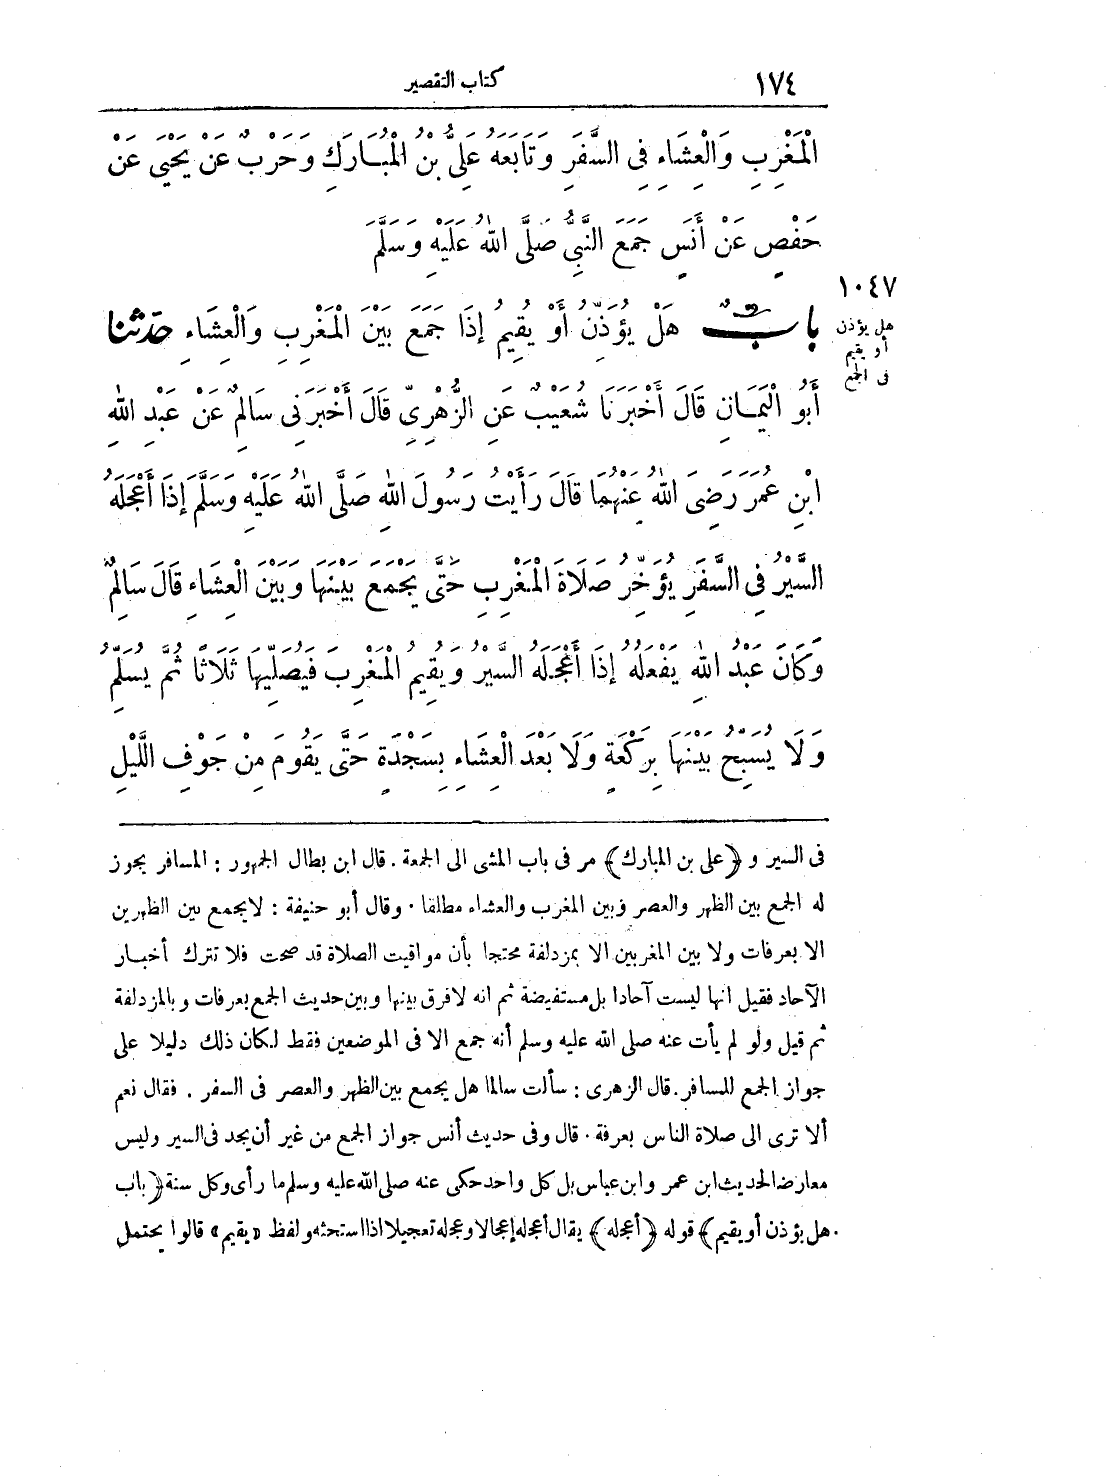 ١٧٤ كتاب التقصير
الْمَغْرِبِ وَالْعِشَاءِ فِى السَّفَرِ وَتَابَعَهُ عَلِىُّ بْنُ الْمُبَارَكِ وَحَرْبٌ عَنْ يَحْيَى عَنْ
حَفْصٍ عَنْ أَنَسٍ جَمَعَ النَّبِىُّ صَلَّى اللهُ عَلَيْهِ وَسَلَّمَ
١٠٤٧
هل يؤذن
أو يقيم
فى الجمع
بابٌ هَلْ يُؤَذِّنُ أَوْ يُقِيمُ إِذَا جَمَعَ بَيْنَ الْمَغْرِبِ وَالْعِشَاءِ حدثنا
أَبُو الْيَمَانِ قَالَ أَخْبَرَنَا شُعَيْبٌ عَنِ الزُّهْرِىِّ قَالَ أَخْبَرَنِى سَالِمٌ عَنْ عَبْدِ اللهِ
ابْنِ عُمَرَ رَضِىَ اللهُ عَنْهُمَا قَالَ رَأَيْتُ رَسُولَ اللهِ صَلَّى اللهُ عَلَيْهِ وَسَلَّمَ إِذَا أَعْجَلَهُ
السَّيْرُ فِى السَّفَرِ يُؤَخِّرُ صَلَاةَ الْمَغْرِبِ حَتَّى يَجْمَعَ بَيْنَهَا وَبَيْنَ الْعِشَاءِ قَالَ سَالِمٌ
وَكَانَ عَبْدُ اللهِ يَفْعَلُهُ إِذَا أَعْجَلَهُ السَّيْرُ وَيُقِيمُ الْمَغْرِبَ فَيُصَلِّيهَا ثَلَاثًا ثُمَّ يُسَلِّمُ
وَلَا يُسَبِّحُ بَيْنَهَا بِرَكْعَةٍ وَلَا بَعْدَ الْعِشَاءِ بِسَجْدَةٍ حَتَّى يَقُومَ مِنْ جَوْفِ اللَّيْلِ
فى السير و ﴿على بن المبارك﴾ مر فى باب المشى الى الجمعة. قال ابن بطال الجمهور : المسافر يجوز
له الجمع بين الظهر والعصر وبين المغرب والعشاء مطلقا. وقال أبو حنيفة : لايجمع بين الظهرين
الا بعرفات ولا بين المغربين الا بمزدلفة محتجا بأن مواقيت الصلاة قد صحت فلا تترك أخبار
الآحاد فقيل انها ليست آحادا بل مستفيضة ثم انه لافرق بينها وبين حديث الجمع بعرفات وبالمزدلفة
ثم قيل ولو لم يأت عنه صلى الله عليه وسلم أنه جمع الا فى الموضعين فقط لكان ذلك دليلا على
جواز الجمع للمسافر. قال الزهرى : سألت سالما هل يجمع بين الظهر والعصر فى السفر . فقال نعم
ألا ترى الى صلاة الناس بعرفة. قال وفى حديث أنس جواز الجمع من غير أن يجد فى السير وليس
معارضا لحديث ابن عمر وابن عباس بل كل واحد حكى عنه صلى الله عليه وسلم ما رأى وكل سنة ﴿باب
هل يؤذن أو يقيم﴾ قوله ﴿أعجله﴾ يقال أعجله إعجالا وعجله تعجيلا اذا استحثه ولفظ «يقيم» قالوا يحتمل